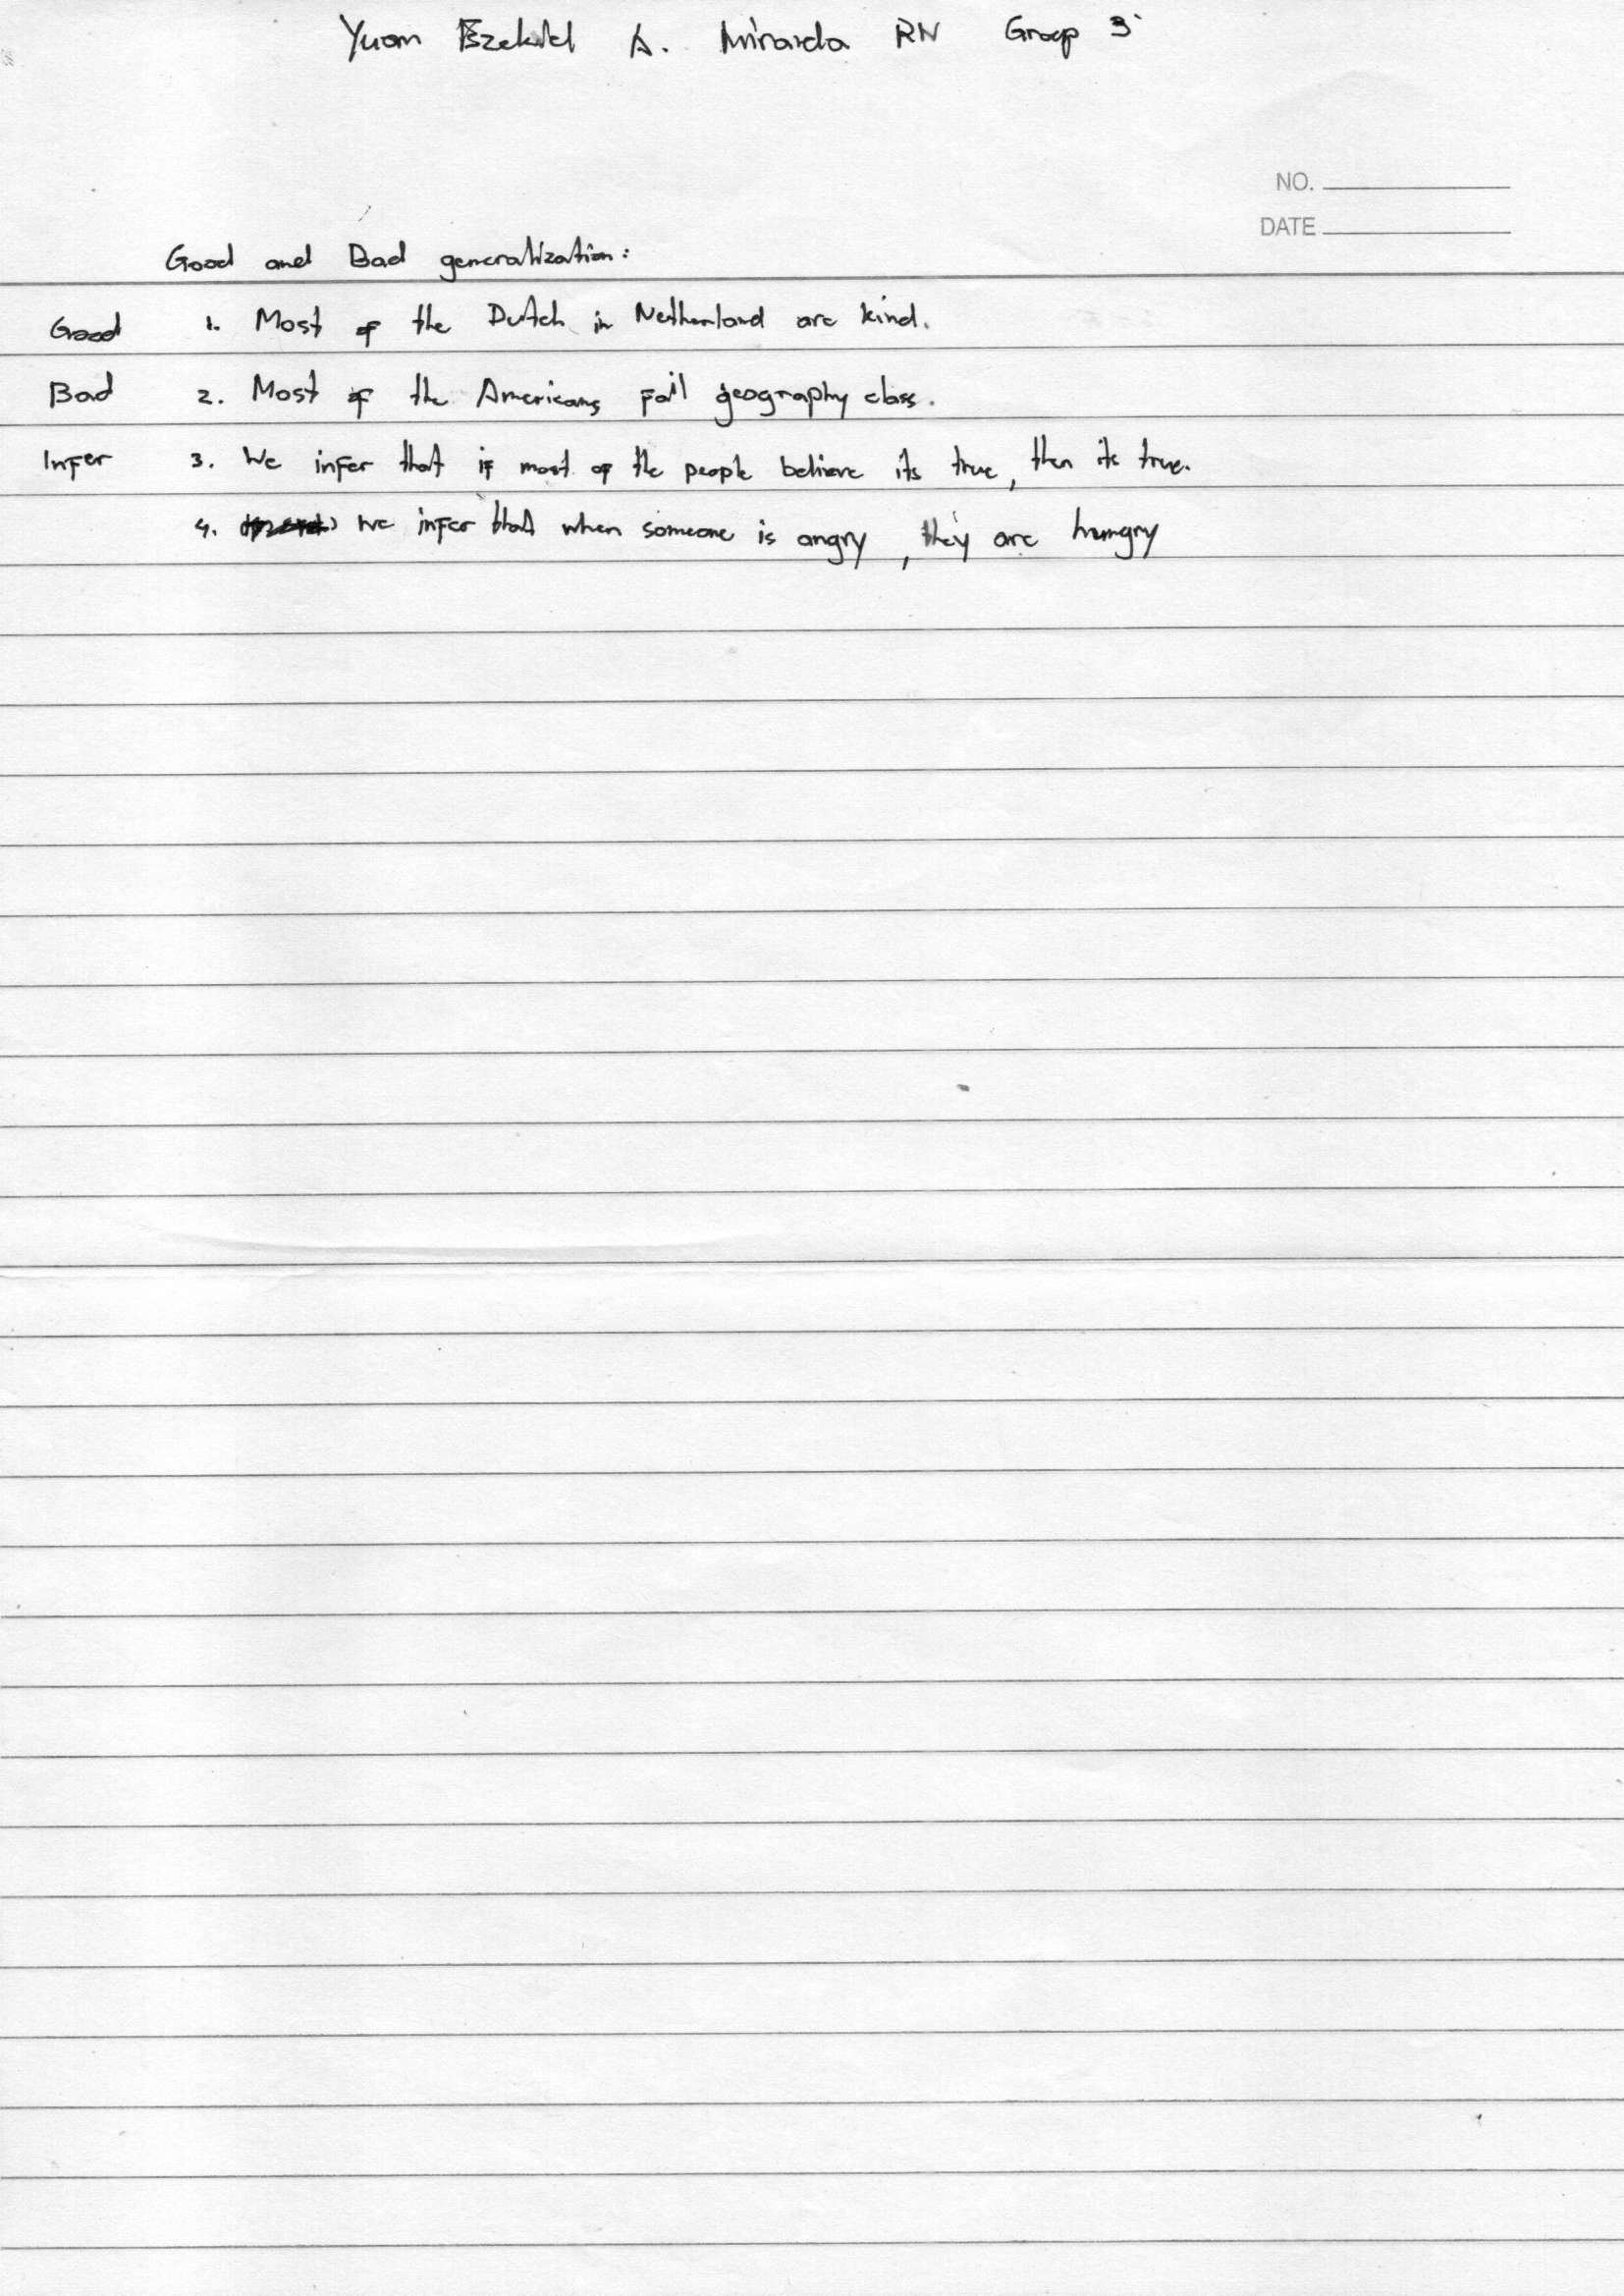 Yuan Ezekiel A. Miranda RN Group 3
NO.
DATE
Good and Bad generalization:
Good 1. Most of the Dutch in Netherland are kind.
Bad 2. Most of the Americans fail geography class.
Infer 3. We infer that if most of the people believe its true, then its true.
4. We infer that when someone is angry, they are hungry